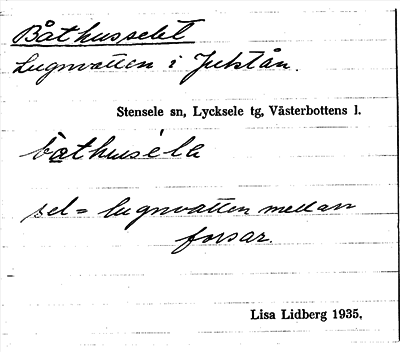 Båthusselet
Lugnvatten i Juktån.
Stensele sn, Lycksele tg, Västerbottens l.
båthusela
sel = lugnvatten mellan
forsar.
Lisa Lidberg 1935,